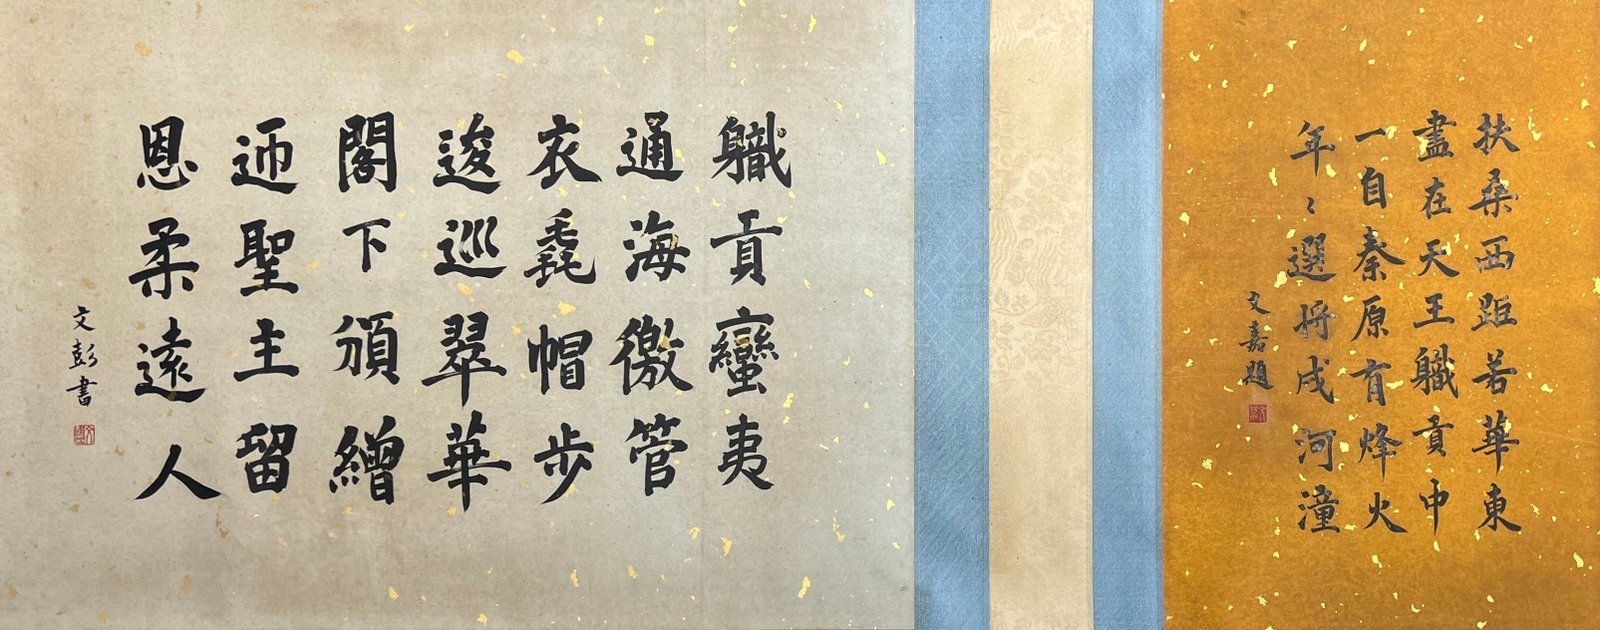 扶桒西距若華東
盡在天王軄貢中
一自秦原有烽火
年〻選將戍河潼
文嘉題
軄貢蠻夷
通海徼管
衣毳帽步
逡巡翠華
閣下頒繒
迊聖主留
恩柔遠人
文彭書